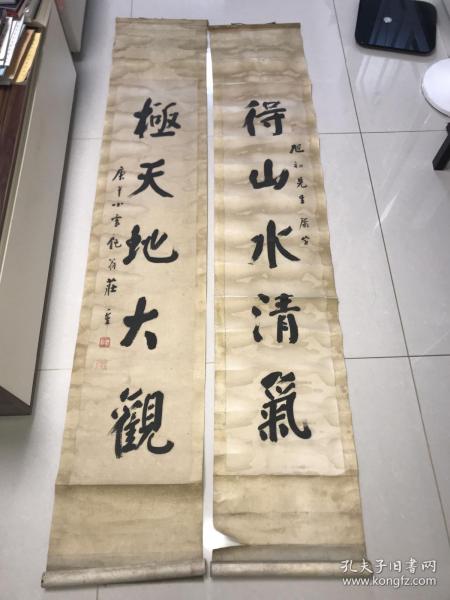 得山水清氣
旭初先生屬
極天地大觀
庚午小雪
莊
孔夫子旧书网
www.kongfz.com